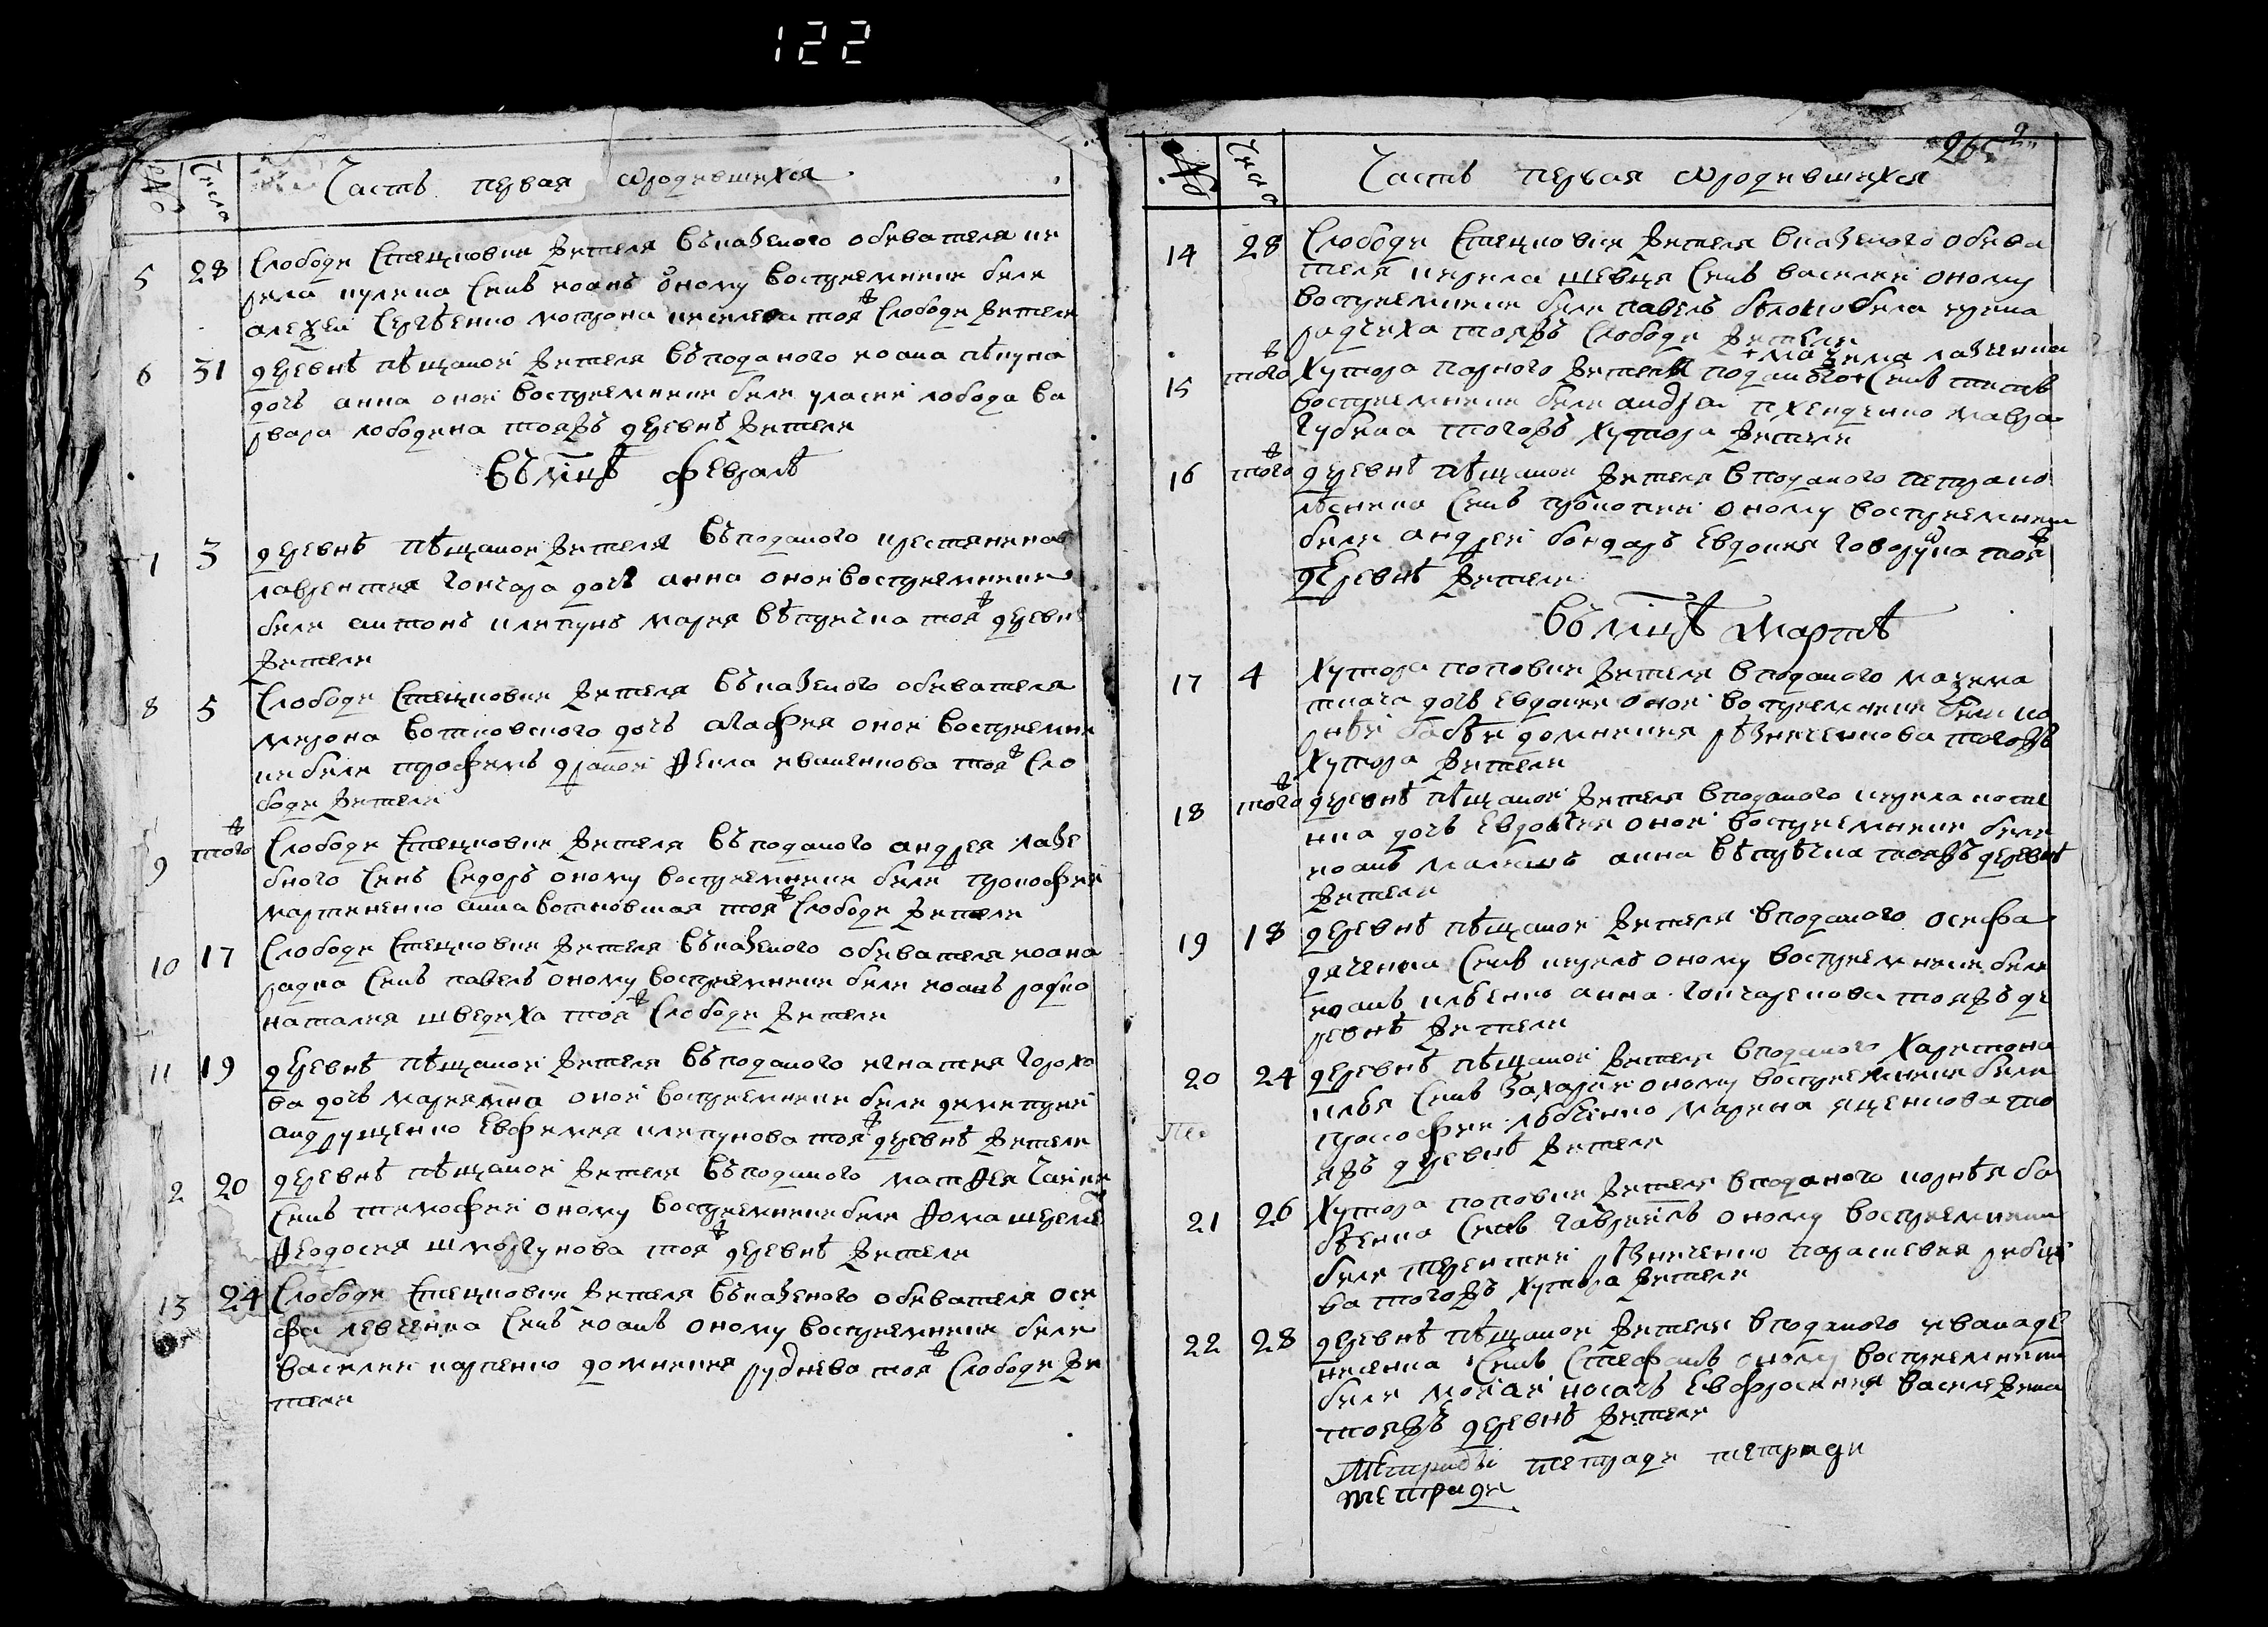 122
№ Числа Часть первая ѡродившихся
5 28 Слободи Стецковки жителя въказеного обивателя ки
рила кулика синъ иоанъ оному восприемники били
алеѯей сергѣенко мотрона киселева тояж слободи жители
6 31 деревнѣ пѣщаной жителя въподаного иоана пѣтуна
дочъ анна оной восприемники били уласий лобода ва
рвара лободина тояжъ деревнѣ жители
въ мцѣ февралѣ
7 3 деревнѣ пѣщаной жителя въподаного крестянина
лаврентия гончара дочъ анна оной восприемники
били антонъ клипунъ мария вѣтричка тояж деревнѣ
жители
8 5 Слободи Стецковки жителя въказеного обивателя
мирона вотновского дочъ агафия оной восприемни
ки били трофимъ драной ѳекла иваненкова тояж сло
боди жители
9 тогож Слободи Стецковки жителя въподаного андрея лазе
бного синъ сидоръ оному восприемники били прокофий
мартиненко анна вотновская тояж слободи жители
10 17 Слободи Стецковки жителя въказеного обивателя иоана
радка синъ павелъ оному восприемники били иоанъ радко
наталия шведиха тояж слободи жители
11 19 деревнѣ пѣщаной жителя въподаного игнатия горохо
ва дочъ мариямна оной восприемники били димитрий
андрущенко евфимия клипунова тояж деревнѣ жители
2 20 деревнѣ пѣщаной жителя въподаного матѳея
синъ тимофий оному восприемники били ѳома
ѳеодосия шморгунова тояж деревнѣ жители
13 24 Слободи Стецковки жителя въказеного обивателя оси
фа левченка синъ иоанъ оному восприемники били
василий карпенко домникия руднева тояж слободи жи
тели
№ Числа Часть первая ѡродившихся
14 28 Слободи Стецковки жителя вказеного обива
теля кирила шевця синъ василий оному
восприемники били павелъ бѣлокобила ирина
радчиха тояжъ слободи жители
+ маѯима лазченка
15 тогож Хутора парного жителя поданого + синъ титъ
восприемники били андрей пхенденко мавра
губина тогожъ хутора жители
16 тогож деревнѣ пѣщаной жителя вподаного петра ко
лѣсника синъ прокопий оному восприемники
били андрей бондаръ евдокия говоруна тояж
деревнѣ жители
въ мцѣ мартѣ
17 4 Хутора поповки жителя вподаного маѯима
ткача дочъ евдокия оной восприемники били ко
рнѣй бабѣй домникия рѣзниченкова тогожъ
хутора жители
18 тогож деревнѣ пѣщаной жителя вподаного кирила косте
нка дочъ евдокия оной восприемники били
иоанъ малишъ анна вѣтрѣчка тояжъ деревнѣ
жители
19 18 деревнѣ пѣщаной жителя вподаного осифа
дяченка синъ кирилъ оному восприемники били
иоанъ илѣенко анна гончаренкова тояжъ де
ревнѣ жители
20 24 деревнѣ пѣщаной жителя вподаного харитона
килбя синъ захарий оному восприемники били
прокофий лѣбченко марина яценкова то
яжъ деревнѣ жители
21 26 Хутора поповки жителя вподаного корнѣя ба
бѣенка синъ гавриилъ оному восприемники
били терентий рѣзниченко параскевия рибце
ва тогожъ хутора жители
22 28 деревнѣ пѣщаной жителя вподаного ивана де
нисенка синъ стефанъ оному восприемники
били мойсий носачъ евфросиния василевна
тояжъ деревнѣ жители
тетради тетради тетради
тетради